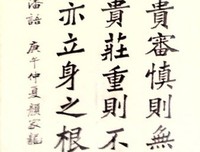 貴審慎則無
貴莊重則不
亦立身之根
潘語 庚午仲夏顏家龍